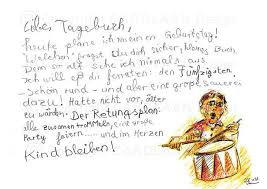 Liebes Tagebuch,
heute plane ich meinen Geburtstag!
Welchen? fragst Du dich sicher, kleines Buch.
Denn so alt sehe ich niemals aus.
Ich will es dir flüstern: den Fünfzigsten.
- Schön rund - und aber eine große Sauerei
dazu! Hatte nicht vor, älter
zu werden. Der Rettungsplan:
alle zusammentrommeln, eine große
Party feiern ..... und im Herzen
Kind bleiben!